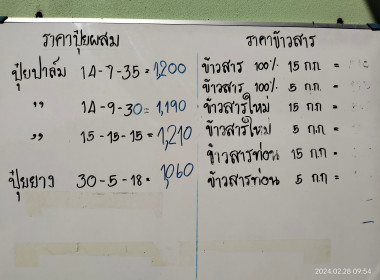 ราคาปุ๋ยผสม
ปุ๋ยปาล์ม 14-7-35 = 1,200
" 14-9-30 = 1,190
" 15-15-15 = 1,210
ปุ๋ยยาง 30-5-18 = 1,060
ราคาข้าวสาร
ข้าวสาร 100% 15 ก.ก =
ข้าวสาร 100% 5 ก.ก =
ข้าวสารใหม่ 15 ก.ก =
ข้าวสารใหม่ 5 ก.ก =
ข้าวสารท่อน 15 ก.ก =
ข้าวสารท่อน 5 ก.ก =
2024.02.28 09:54